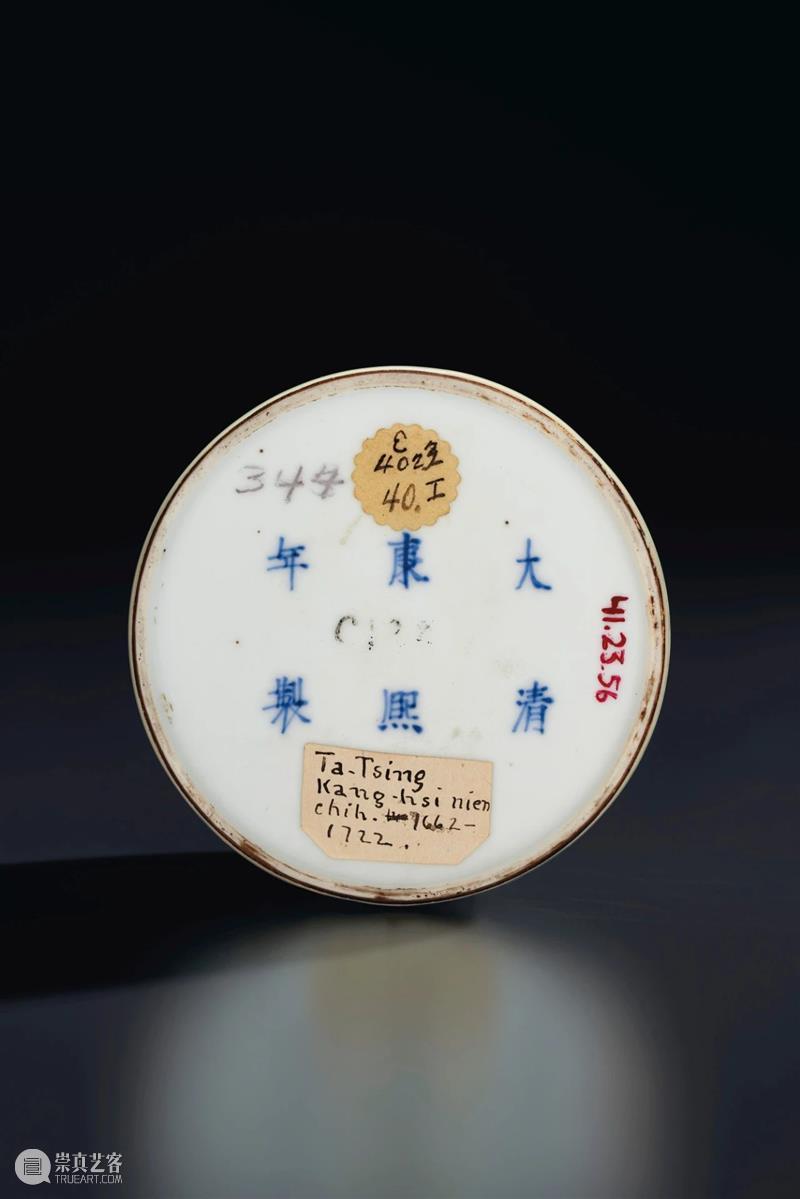 344
E
40.I
大清
康熙
年製
41.23.56
Ta-Tsing
Kang-hsi nien
chih. 1662-
1722.
崇真艺客
TRUEART.COM